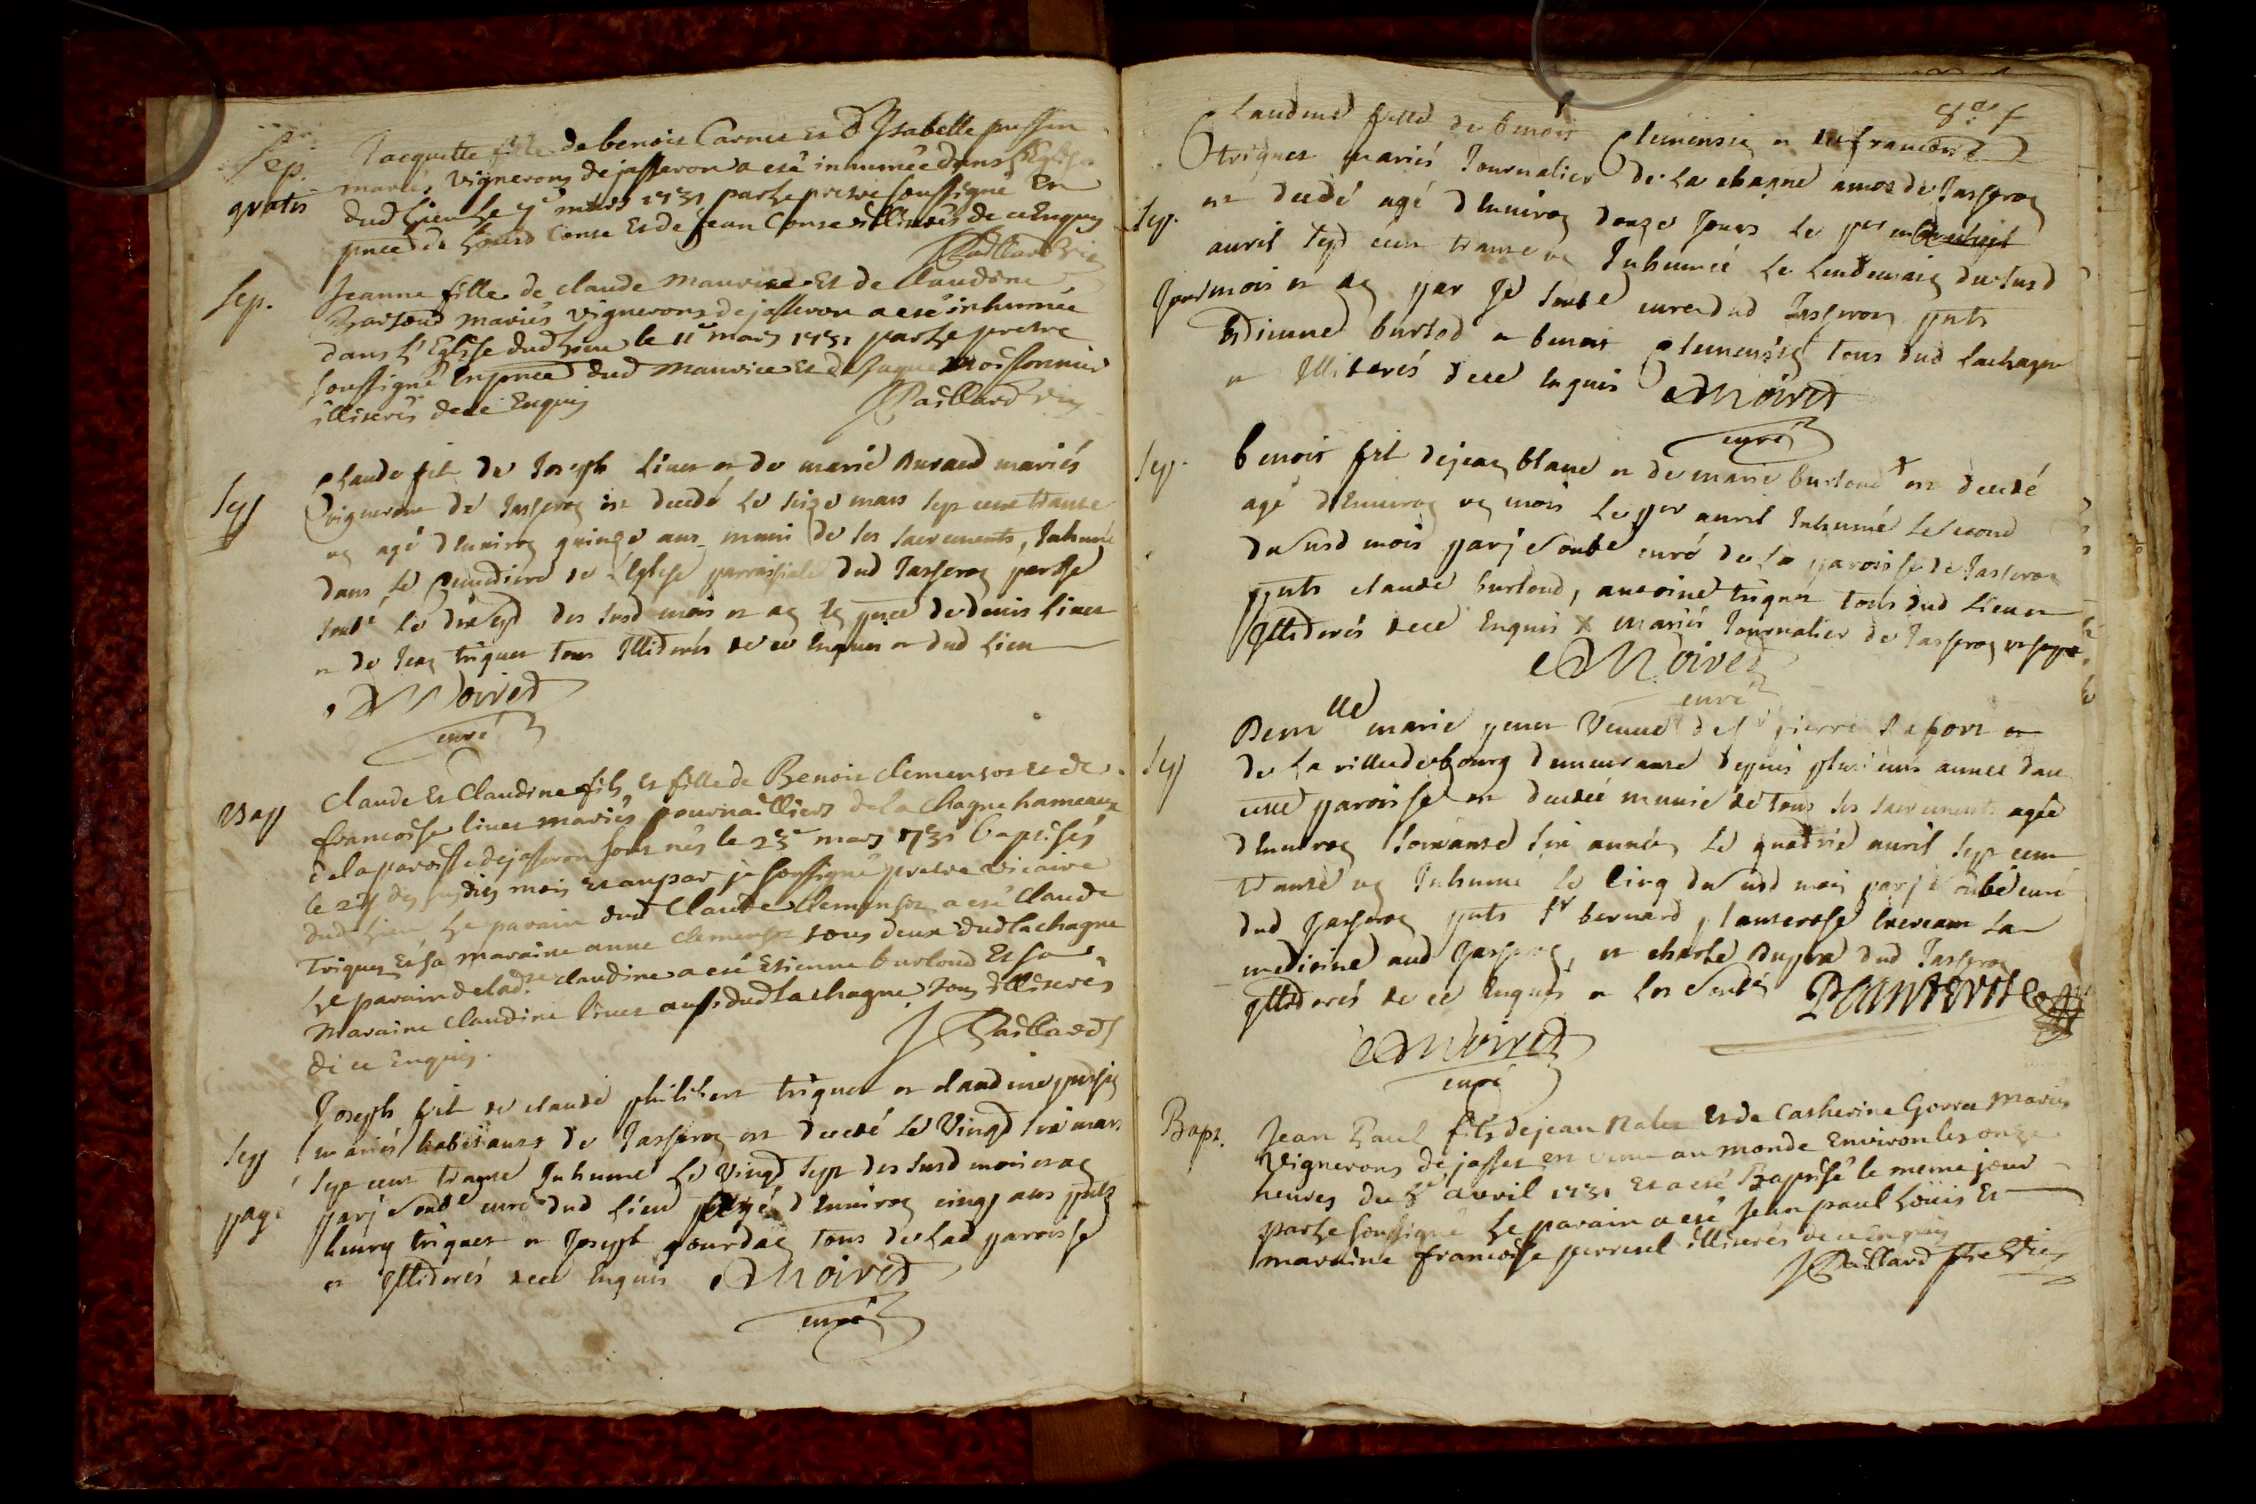 Sep.
gratis
Jacquette fille de benoit Carnet Et d'Ysabelle
mariés vignerons de jasseron a eté inhumée dans l'Eglise
dud lieu Le mars 1731 par Le pretre soussigné En
pnce de Conse Et de jean Conse illiterés de ce Enquis
JPaillard vic
Sep.
Jeanne fille de claude maurice Et de Claudine
mariés vignerons de jasseron a eté inhumée
dans L'Eglise dud Lieu le 11e mars 1731 par Le pretre
soussigné En pnce dud maurice Et de Jaque moissonnier
illiterés de ce Enquis JPaillard vic
Sep
Claude fils de Joseph Livet et de marie Buraud mariés
vignerons de Jasseron est decedé le seize mars sept cent trante
un agé d'Environ quinze ans muni de ses sacrements, Inhumé
dans le Cimetiere de l'Eglise parroissiale dud Jasseron par Je
soubé le dix sept des susd mois et an En pnce de denis Livet
et de Jean triquet tous Illiterés de ce Enquis et dud Lieu
Moiret
curé
Bap
Claude Et Claudine fils Et fille de Benoit clemensot Et de
francoise livet mariés journailliers de la Chagne hameau
de la paroisse de jasseron sont nés le 23e mars 1731 baptisés
le 24 des susdits mois Et an par je soussigné pretre vicaire
dud Lieu Le parain dud Claude Clemensot a eté Claude
Triquet Et sa maraine anne clemensot tous deux dud la chagne
Le parain de lad.te claudine a eté Etienne burtoud Et sa
Maraine Claudine livet aussi dud La chagne tous illiterés
de ce Enquis. JPaillard
Sep
payé
Joseph fils de claude philibert triquet et claudine
mariés habitants de Jasseron est decedé le Vingt six mars
sept cent trante Inhumé Le vingt sept des susd mois et an
par je soubé curé dud Lieu agé d'Environ cinq ans pnts
henry triquet et Joseph gourdan tous de Lad parroisse
et Illiterés de ce Enquis Moiret
curé
Sep.
Claudine fille de benoit Clemensin et de francoise
triquet mariés Journalier de La chagne amoz de Jasseron
est decedé agé d'Environ douze Jours le per
avril sept cent trante un Inhumée le Lendemain du susd
mois et an par Je soubé curé dud Jasseron pnts
Etienne burtod et benoit Clemensin tous dud Lachagne
et Illiterés de ce Enquis Moiret
curé
Sep.
benoit fils de jean blanc et de marie burtoud + est decedé
agé d'Environ un mois le per avril Inhumé le second
du susd mois par je soubé curé de La paroisse de Jasseron
pnts claude burtoud, antoine triquet tous dud Lieu et
Illiterés de ce Enquis X mariés Journalier de Jasseron
Moiret
curé
Sep
Demlle marie Veuve de Sr pierre et
de La ville de bourg demeurante depuis plusieurs annee dans
cette paroisse est decedée munie de tous ses sacrements agée
d'Environ soixante six années le quatrie avril sept cent
trante un Inhumée le cinq du susd mois par je soubé curé
dud Jasseron pnts Sr bernard panterose Exercant La
medicine aud Jasseron, et charle dupra dud Jasseron
Illiterés de ce Enquis et Panterose
Moiret
curé
Bapt.
Jean Paul fils de jean Et de Catherine Gorra Mariés
Vignerons de jasser est venu au monde Environ les onze
heures du avril 1731 Et a eté Baptisé le meme jour
par Le soussigné Le parain a eté Jean paul Loüis Et
maraine francoise perresel illiterés de ce Enquis
JPaillard ptre Vic